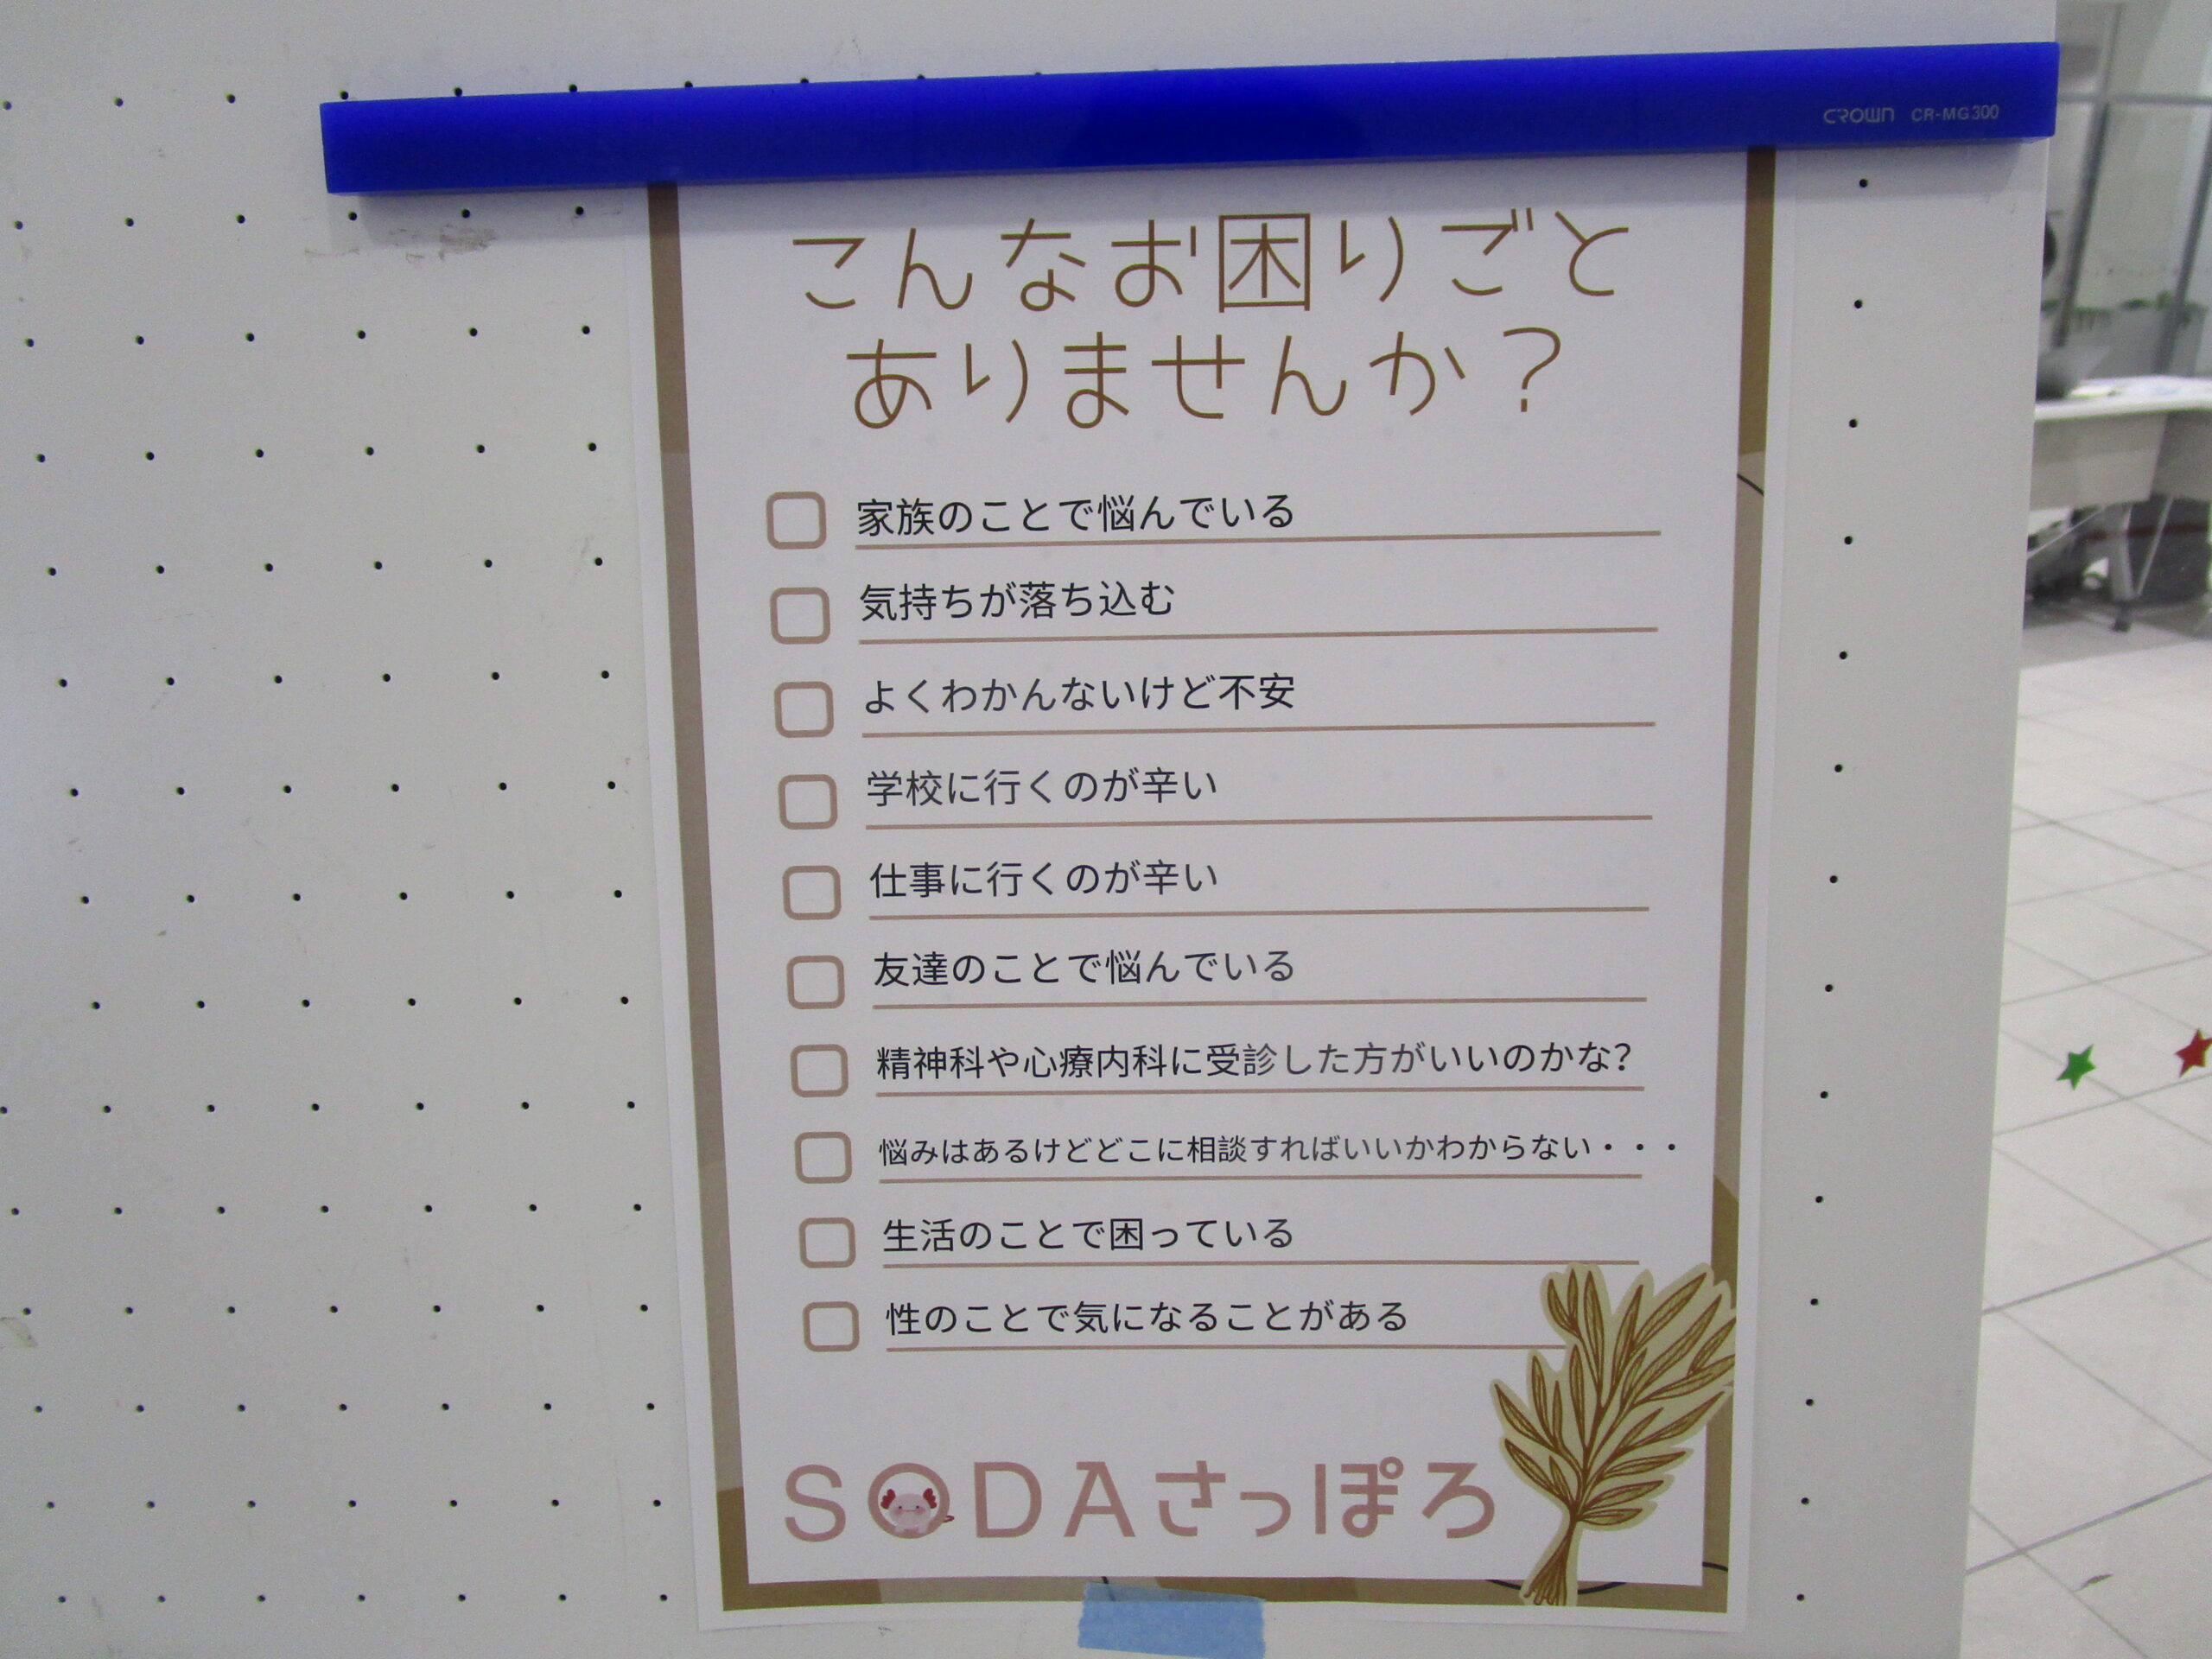 CROWN CR-MG300
こんなお困りごと
ありませんか？
家族のことで悩んでいる
気持ちが落ち込む
よくわかんないけど不安
学校に行くのが辛い
仕事に行くのが辛い
友達のことで悩んでいる
精神科や心療内科に受診した方がいいのかな?
悩みはあるけどどこに相談すればいいかわからない・・・
生活のことで困っている
性のことで気になることがある
SODAさっぽろ